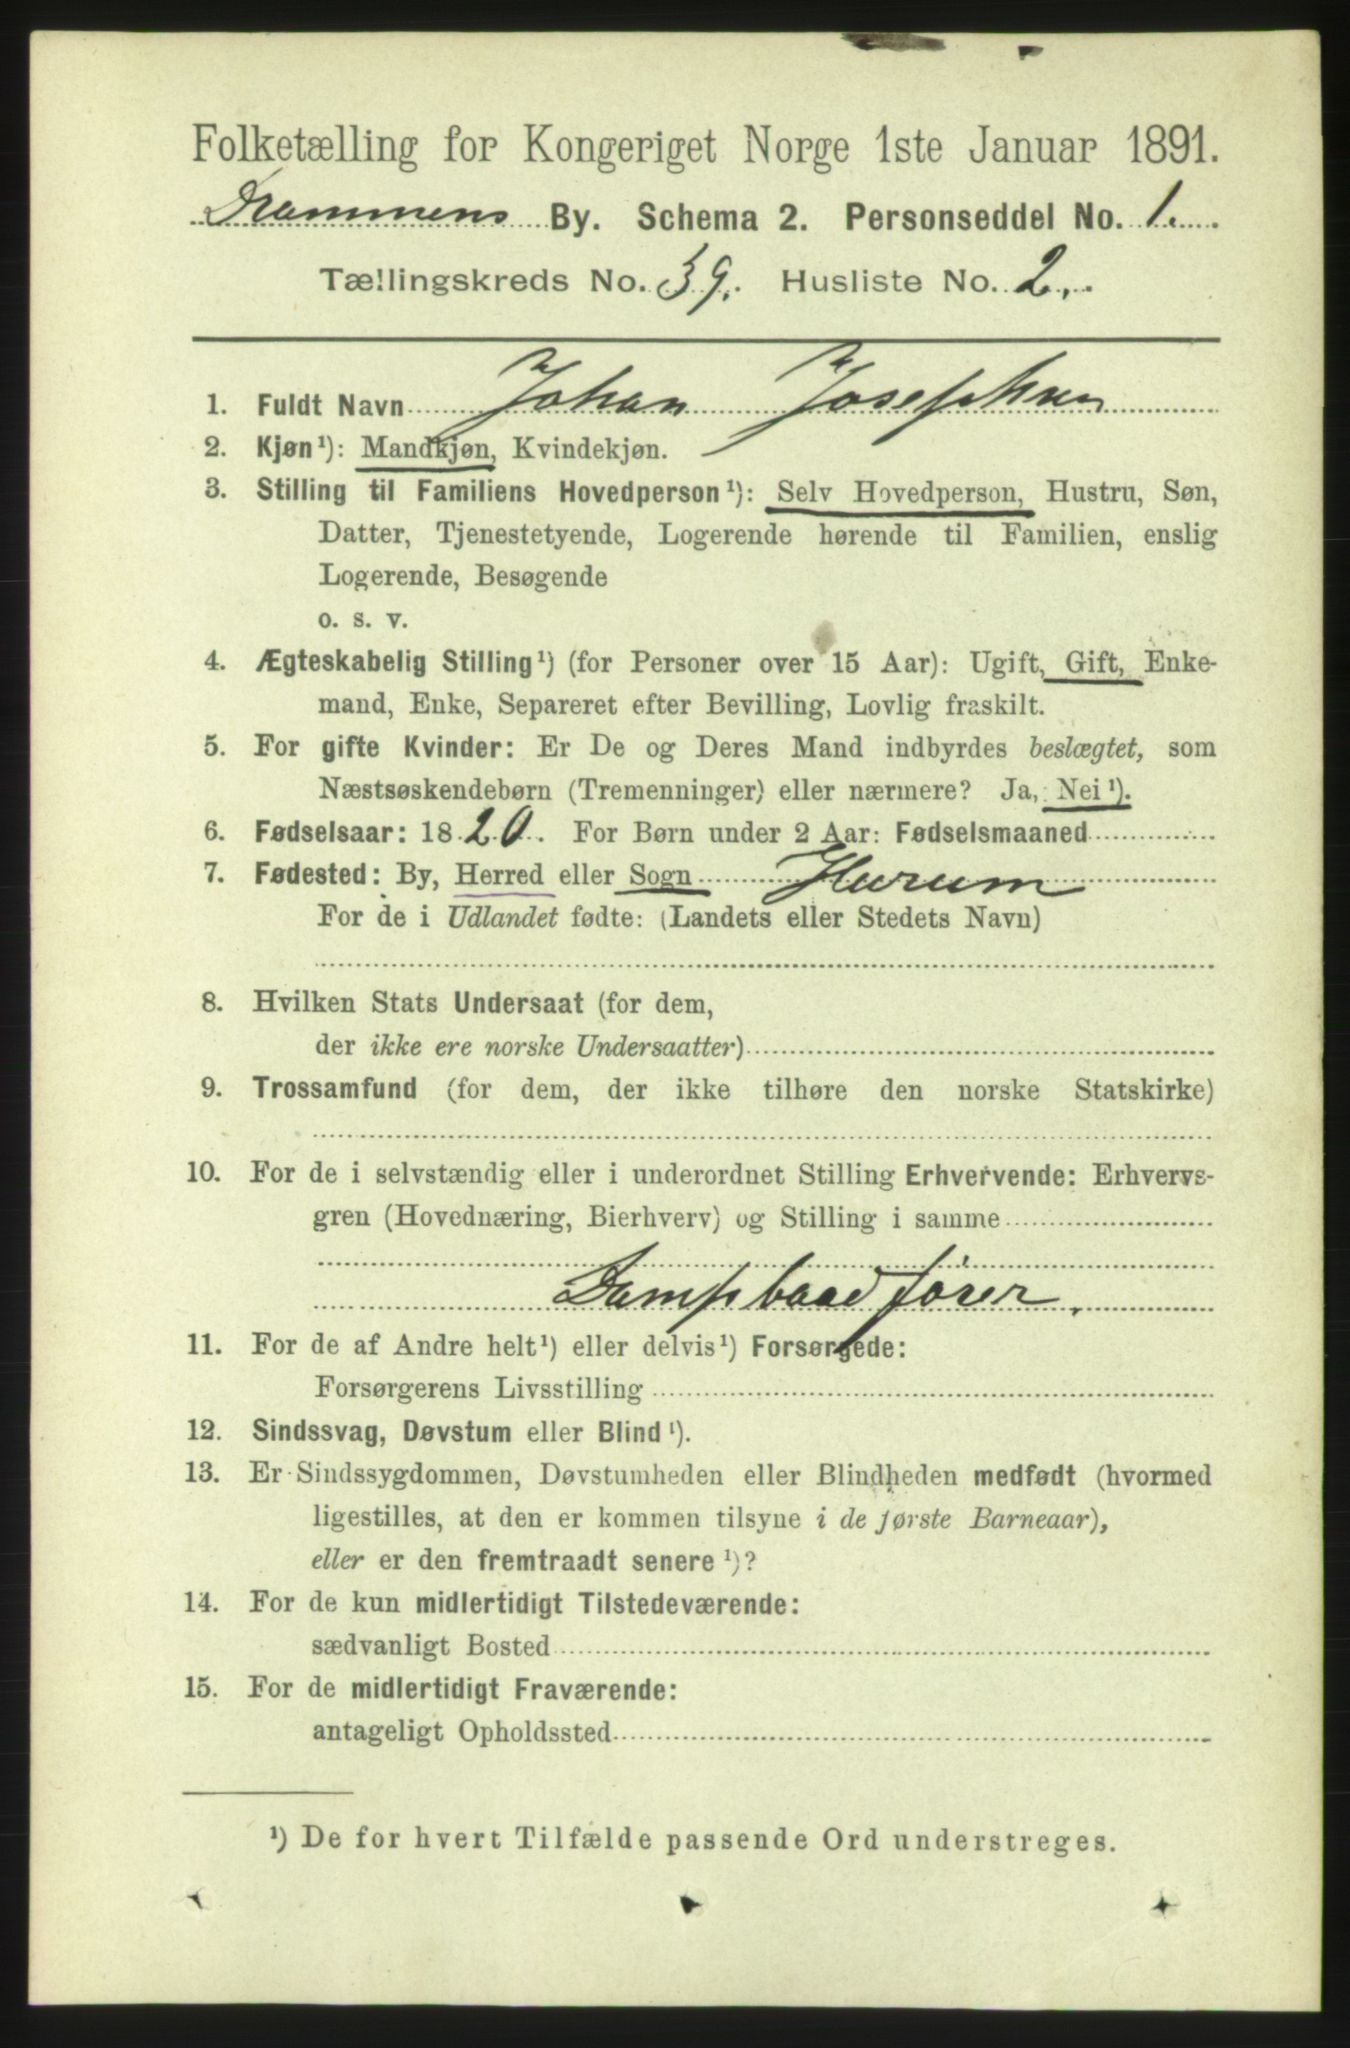 Folketælling for Kongeriget Norge 1ste Januar 1891.
Drammens By. Schema 2. Personseddel No. 1.
Tællingskreds No. 39. Husliste No. 2.
1. Fuldt Navn Johan Josephsen
2. Kjøn¹): Mandkjøn, Kvindekjøn.
3. Stilling til Familiens Hovedperson¹): Selv Hovedperson, Hustru, Søn,
Datter, Tjenestetyende, Logerende hørende til Familien, enslig
Logerende, Besøgende
o. s. v.
4. Ægteskabelig Stilling¹) (for Personer over 15 Aar): Ugift, Gift, Enke-
mand, Enke, Separeret efter Bevilling, Lovlig fraskilt.
5. For gifte Kvinder: Er De og Deres Mand indbyrdes beslægtet, som
Næstsøskendebørn (Tremenninger) eller nærmere? Ja, Nei¹).
6. Fødselsaar: 1820. For Børn under 2 Aar: Fødselsmaaned
7. Fødested: By, Herred eller Sogn Hurum
For de i Udlandet fødte: (Landets eller Stedets Navn)
8. Hvilken Stats Undersaat (for dem,
der ikke ere norske Undersaatter)
9. Trossamfund (for dem, der ikke tilhøre den norske Statskirke)
10. For de i selvstændig eller i underordnet Stilling Erhvervende: Erhvervs-
gren (Hovednæring, Bierhverv) og Stilling i samme
Dampbaad fører.
11. For de af Andre helt¹) eller delvis¹) Forsørgede:
Forsørgerens Livsstilling
12. Sindssvag, Døvstum eller Blind¹).
13. Er Sindssygdommen, Døvstumheden eller Blindheden medfødt (hvormed
ligestilles, at den er kommen tilsyne i de første Barneaar),
eller er den fremtraadt senere¹)?
14. For de kun midlertidigt Tilstedeværende:
sædvanligt Bosted
15. For de midlertidigt Fraværende:
antageligt Opholdssted
¹) De for hvert Tilfælde passende Ord understreges.